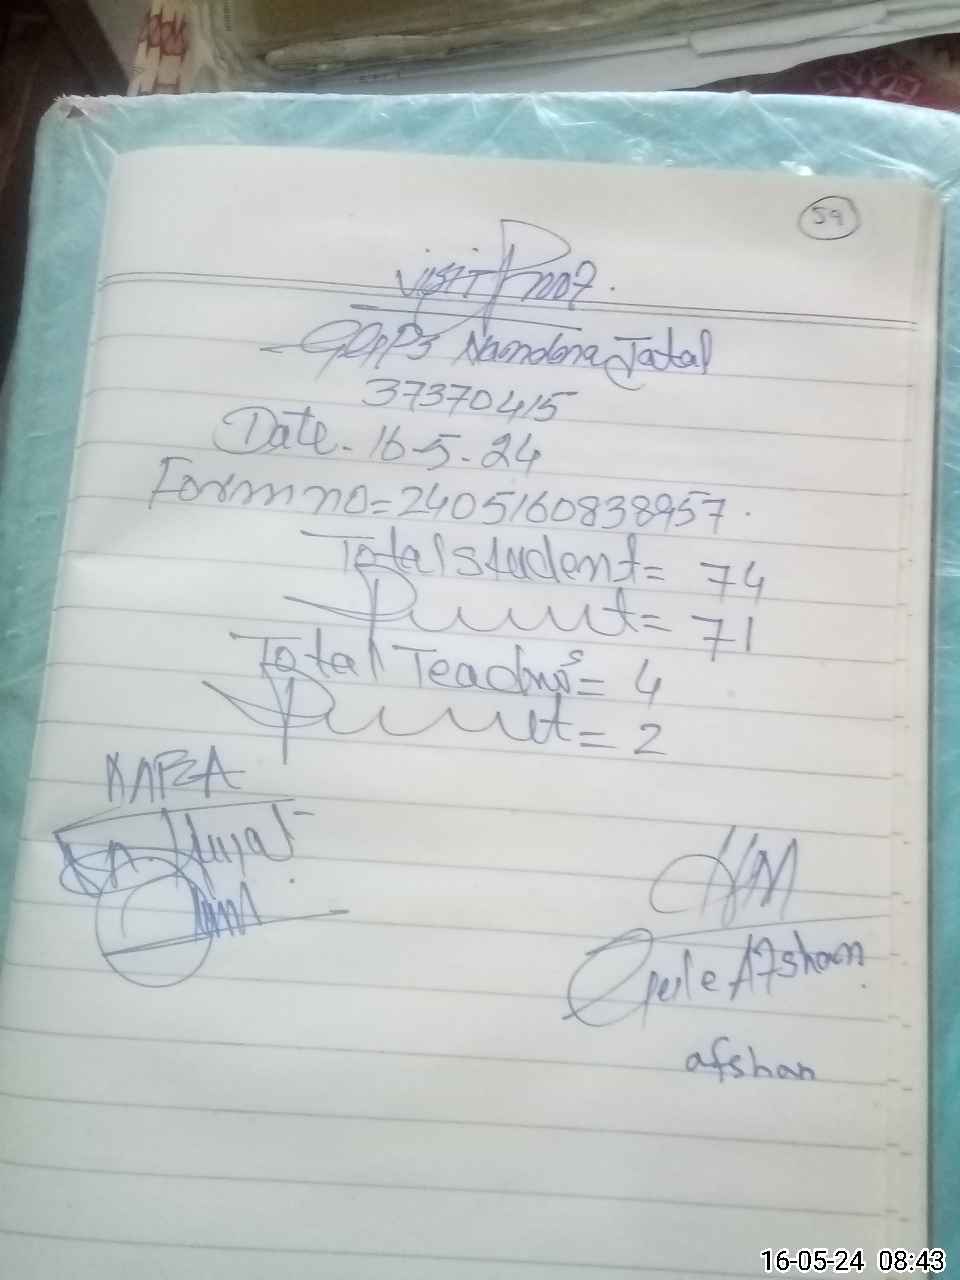 59
Visit Proof.
GGPS Namdona Jatal
37370415
Date - 16-5-24
Form no = 2405160838957.
Total student = 74
Present = 71
Total Teachers = 4
Present = 2
HM
Gule Afshan.
afshan
16-05-24 08:43